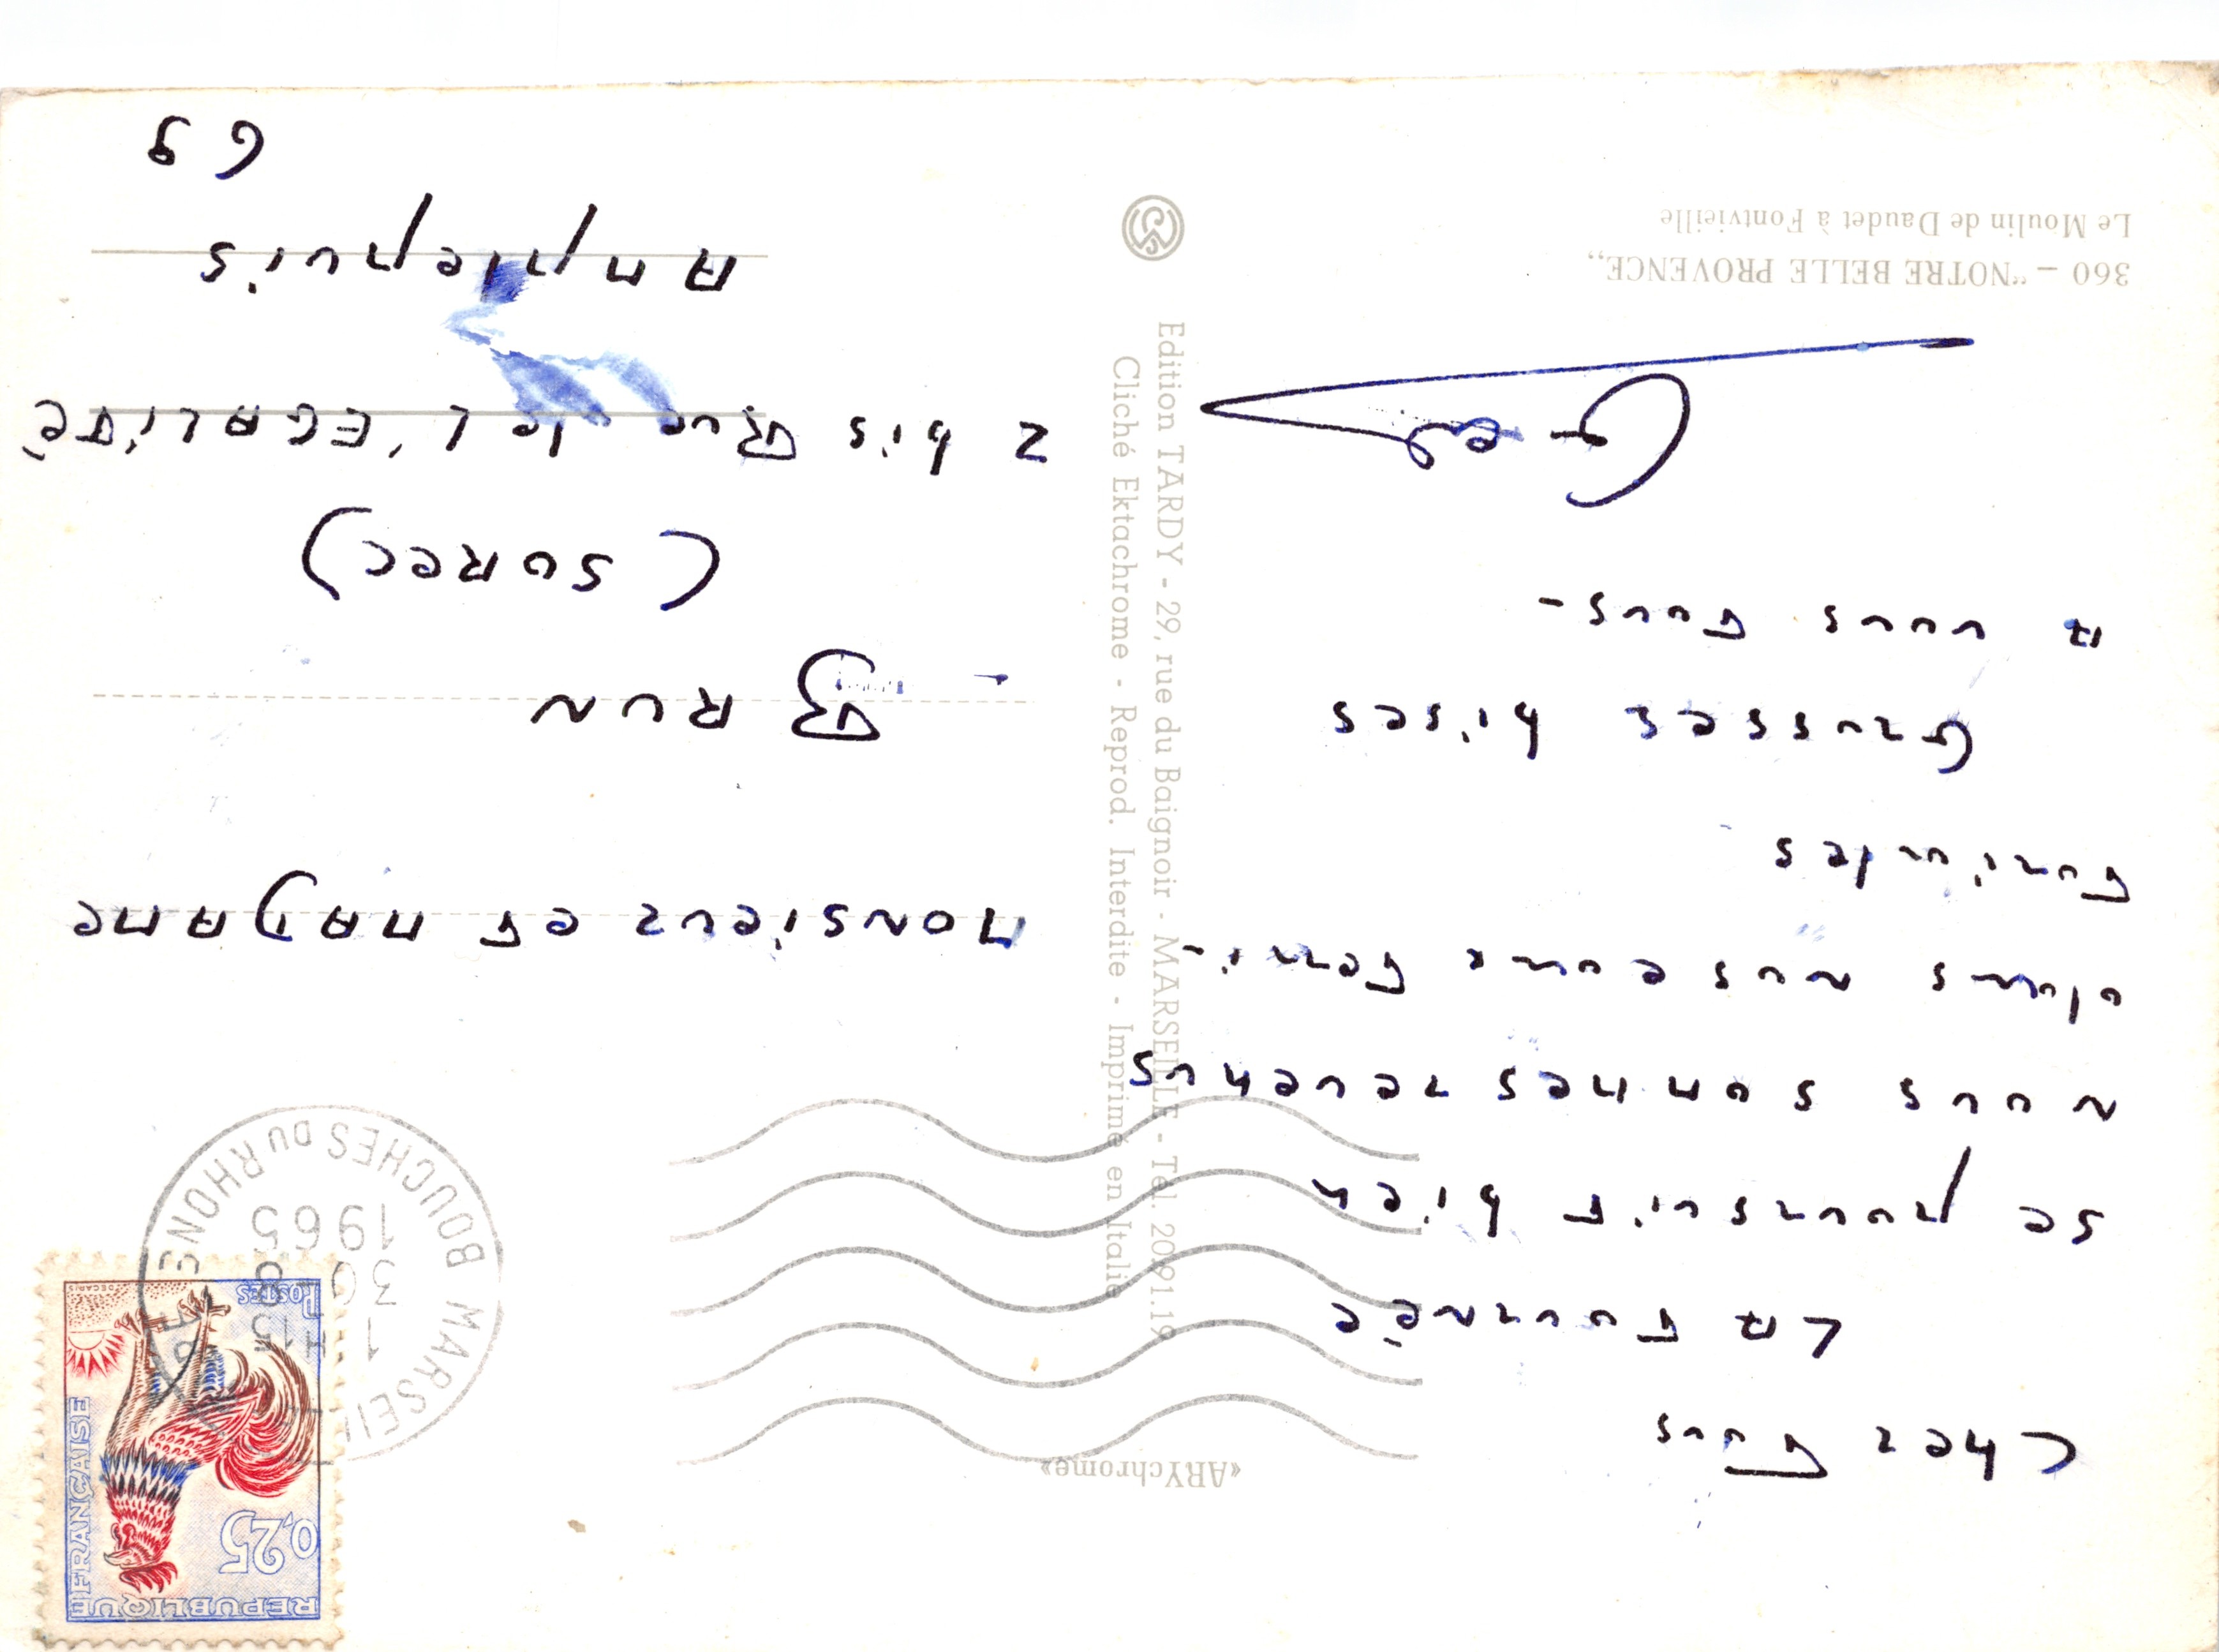 «ARYchrome»
Cher Tous
LA Tournée
se poursuit bien
nous sommes revenus
dans nos eaux terri-
toriales
Grosses bises
A vous tous-
360 – "NOTRE BELLE PROVENCE"
Le Moulin de Daudet à Fontvieille
Edition TARDY - 29, rue du Baignoir - MARSEILLE - Tél. 20.91.19
Cliché Ektachrome - Reprod. Interdite - Imprimé en Italie
REPUBLIQUE
FRANÇAISE
0,25
POSTES
DECARIS
BOUCHES DU RHONE
30-8
1965
MONSIEUR et MADAME
BRUN
(SOREC)
2 bis Rue de L'EGALITÉ
Amplepuis
69